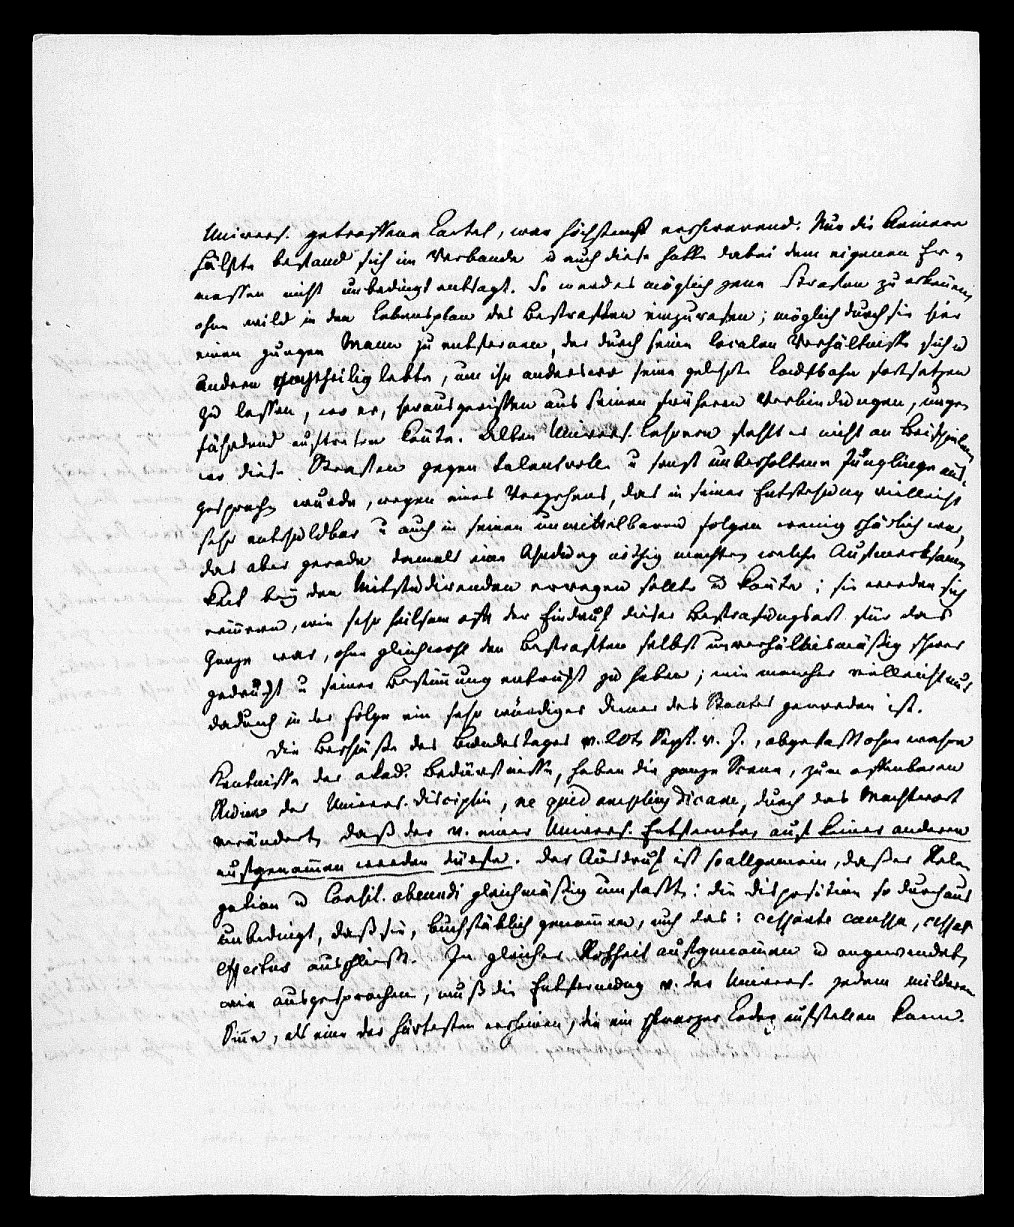 Univers. getroffene Cartel, war höchstens erschwerend. Nur die kleinere
Hälfte bestand sich im Verbande u auch diese hatte dabei dem eigenen Er-
messen nicht unbedingt entsagt. So ward es möglich jene Strafen zu erkennen,
ohne wild in den Lebensplan des Bestraften einzugreifen; möglich durch sie hier
einen jungen Mann zu entfernen, der durch seine localen Verhältnisse sich u
Andern nachtheilig lebte, um ihn anderswo seine gelehrte Laufbahn fortsetzen
zu lassen, wo er, herausgerissen aus seinen früheren Verbindungen, unge-
fährdend auftreten konte. Alten Univers. Lehrern fehlt es nicht an Beispielen,
wo diese Strafen gegen talentvolle u sonst unbescholtene Jünglinge aus-
gesprochen wurde, wegen eines Vergehens, das in seiner Entstehung vielleicht
sehr entschuldbar u auch in seinen unmittelbaren Folgen wenig schädlich war,
das aber gerade damals eine Ahndung nöthig machte, welche Aufmerksam-
keit bey den Mitstudirenden erregen sollte u konte; sie werden sich
erinnern, wie sehr heilsam oft der Eindruk dieser Bestrafungsart für das
Ganze war, ohne gleichwohl den Bestraften selbst unverhältnismäßig schwer
gedrückt u seiner Bestimmung entrückt zu haben; wie mancher vielleicht nur
dadurch in der Folge ein sehr würdiger Diener des Staates geworden ist.
Die Beschlüsse des Bundestages v. 20t Sept. v. J., abgefasst ohne wahre
Kentnisse der akad. Bedürfnisse, haben die ganze Scene, zum offenbaren
Ruine der Univers. Disciplin, ne quid amplius dicam, durch das Machtwort
verändert, daß der v. einer Univers. Entfernte, auf keiner anderen
aufgenommen werden dürfe. Der Ausdruk ist so allgemein, daß er Rele-
gation u Consil. abeundi gleichmäßig umfasst: die Disposition so durchaus
unbedingt, daß sie, buchstäblich genommen, auch das: cessante caussa, cessat
effectus ausschliesst. In gleicher Rohheit aufgenommen u angewendet,
wie ausgesprochen, muß die Entfernung v. der Univers. jedem milderen
Sinne, als eine der härtesten erscheinen, die ein schwarzer Codex aufstellen kann.